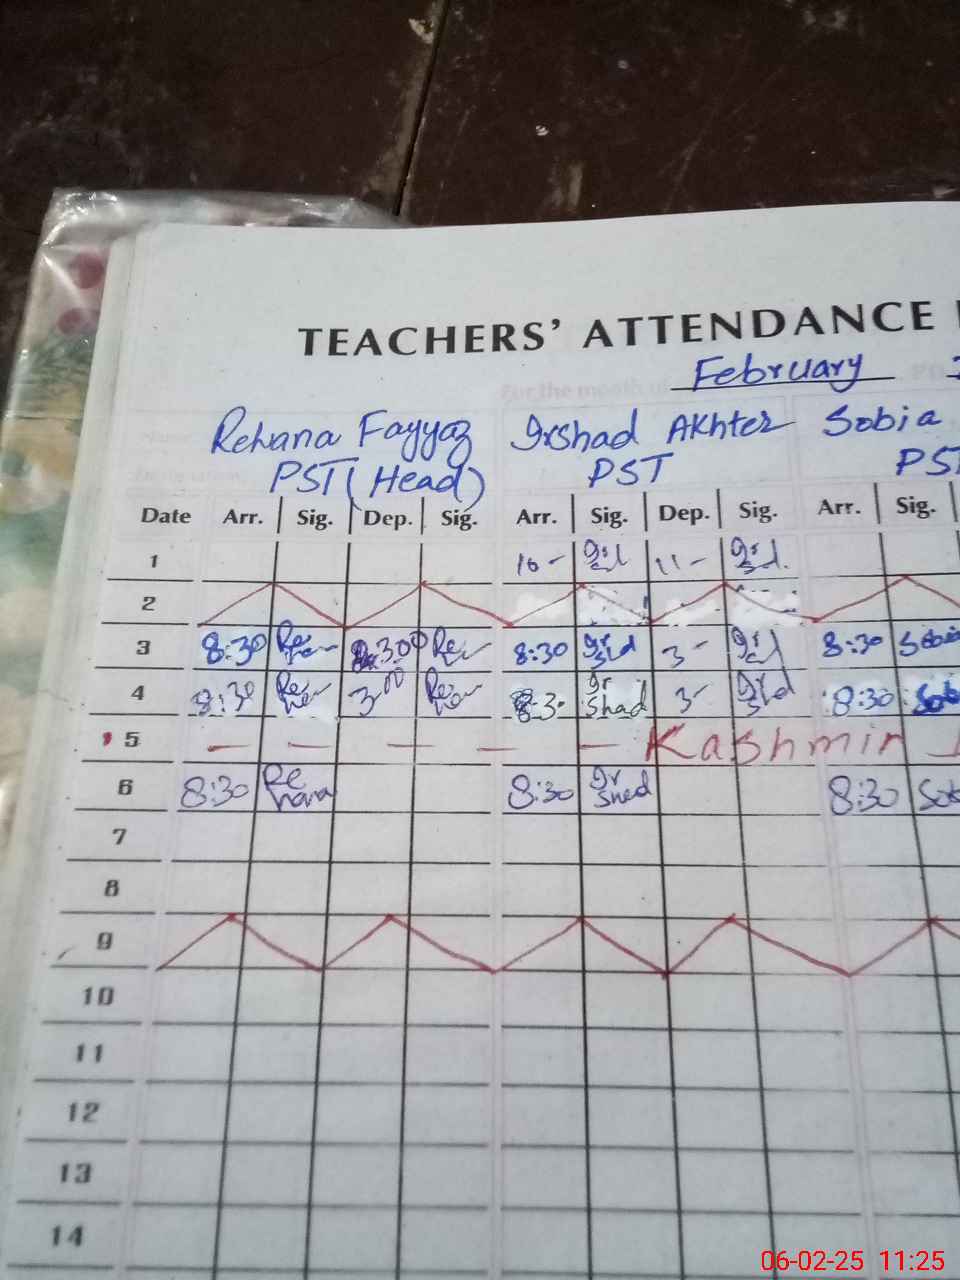 TEACHERS' ATTENDANCE
For the month of February 20
Rehana Fayyaz Irshad Akhter Sobia
PST (Head) PST PST
Date Arr. Sig. Dep. Sig. Arr. Sig. Dep. Sig. Arr. Sig.
1 10- 11-
2
3 8:30 3:00 8:30 3- 8:30 Sobia
4 8:30 3:00 8:30 Irshad 3- 8:30 Sob
5 — — — — — Kashmir
6 8:30 Rehana 8:30 Irshad 8:30 Sob
7
8
9
10
11
12
13
14
06-02-25 11:25